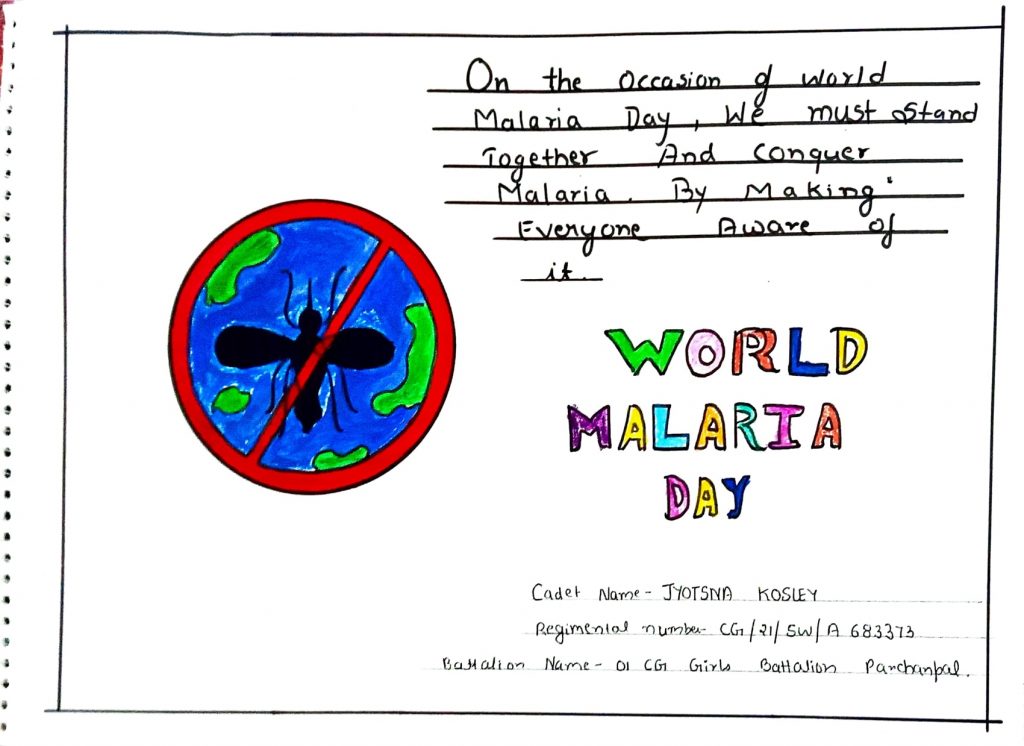 On the Occasion of World
Malaria Day, We must Stand
Together And Conquer
Malaria. By Making
Everyone Aware of
it.
WORLD
MALARIA
DAY
Cadet Name - JYOTSNA KOSLEY
Regimental number- CG/21/SW/A 683373
Battalion Name - 01 CG Girls Battalion Parchanpal.